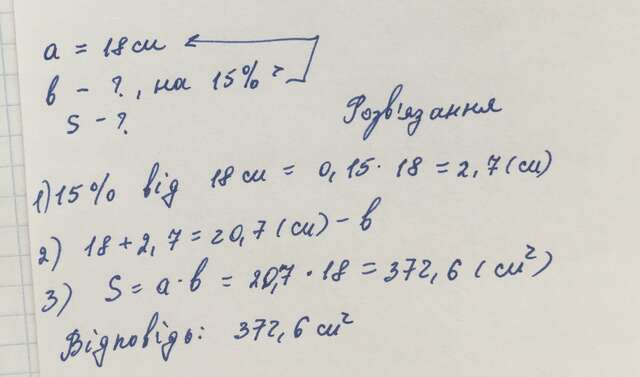 a = 18 см
в - ?, на 15% ?
S - ?
Розв'язання
1) 15% від 18 см = 0,15 · 18 = 2,7 (см)
2) 18 + 2,7 = 20,7 (см) - в
3) S = a · в = 20,7 · 18 = 372,6 (см²)
Відповідь: 372,6 см²